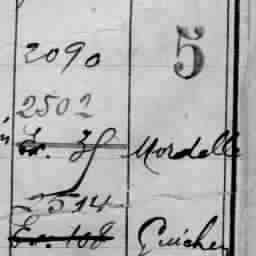 2090
5
2502
Ex. 38 Mordelle
2514
Ex. 108 Guichen